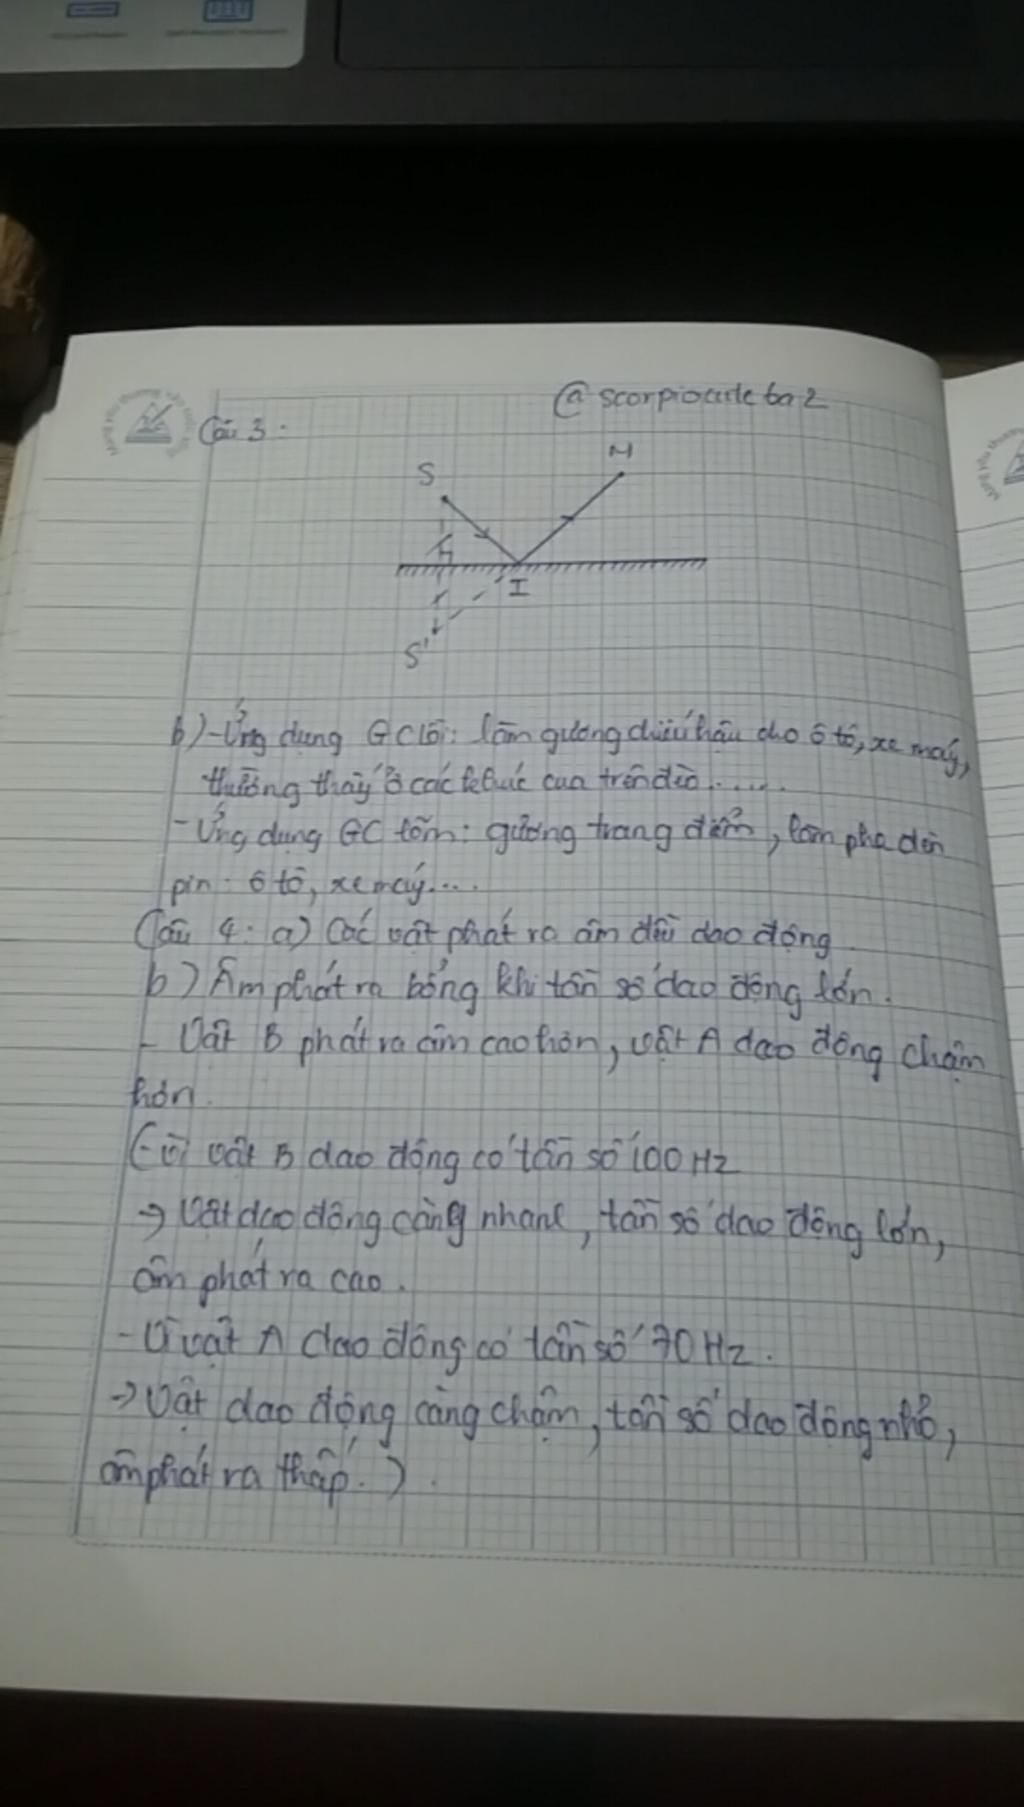 @ scorpiocute ba 2
Câu 3:
S
M
I
S'
b) - Ứng dụng GC lồi: làm gương chiếu hậu cho ô tô, xe máy,
thường thấy ở các khúc cua trên đèo.....
- Ứng dụng GC lõm: gương trang điểm, làm pha đèn
pin: ô tô, xe máy...
Câu 4: a) Các vật phát ra âm đều dao động
b) Âm phát ra bổng khi tần số dao động lớn.
- Vật B phát ra âm cao hơn, vật A dao động chậm
hơn.
(- Vì vật B dao động có tần số 100 Hz
→ Vật dao động càng nhanh, tần số dao động lớn,
âm phát ra cao.
- Vì vật A dao động có tần số 70 Hz.
→ Vật dao động càng chậm, tần số dao động nhỏ,
âm phát ra thấp.).